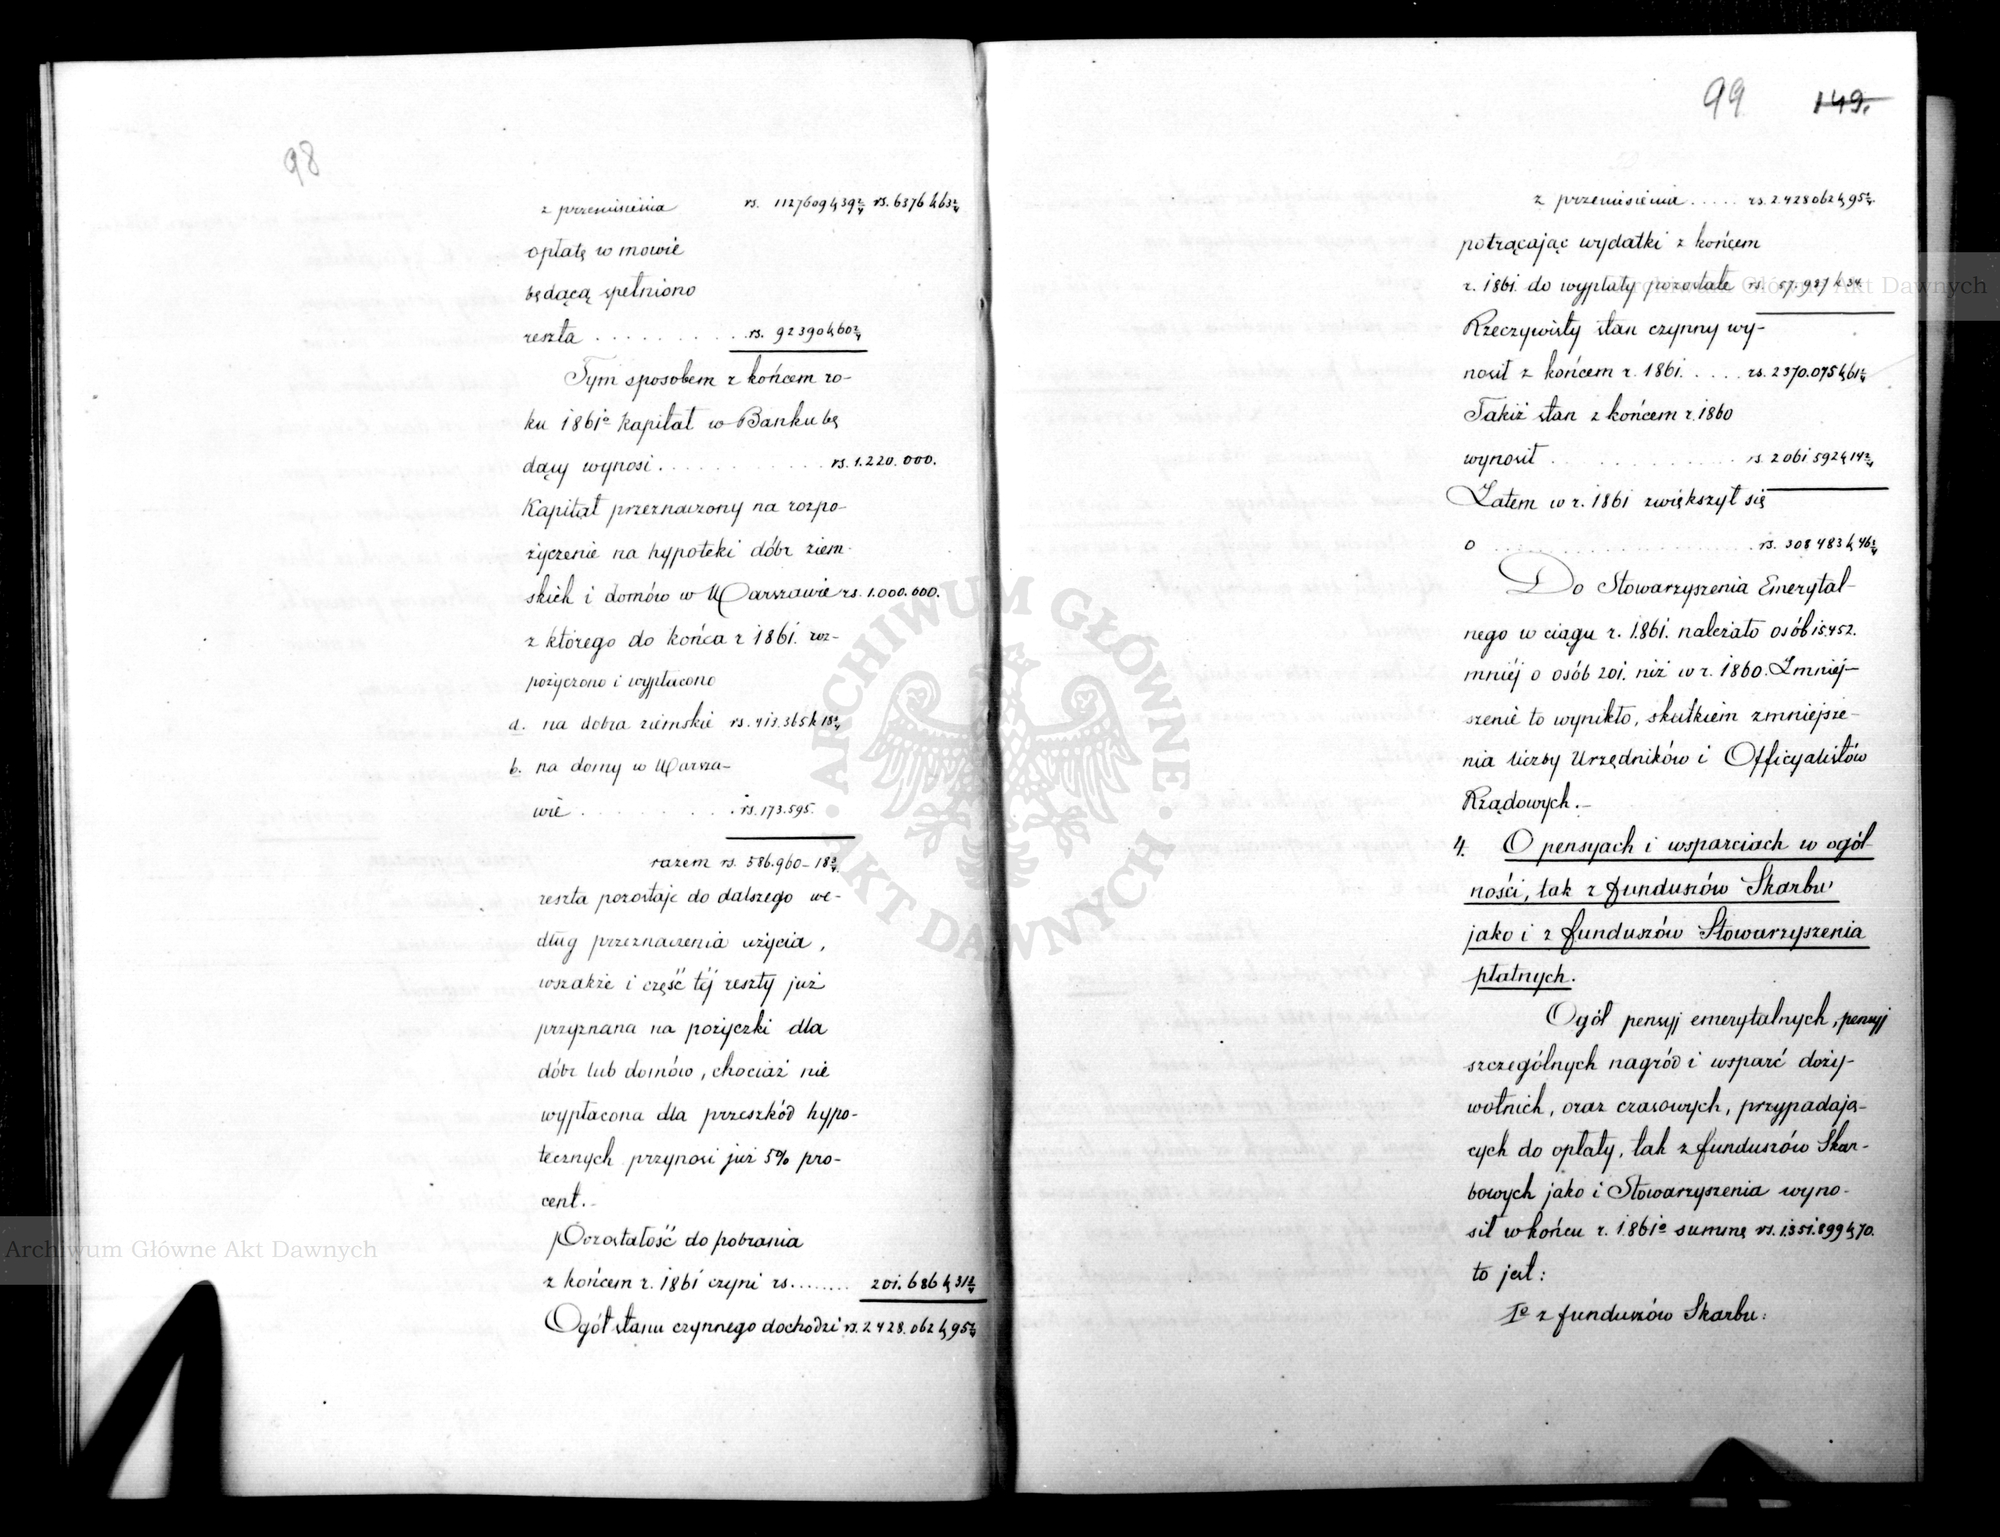 98
z przeniesienia rs. 1127609 k 39 2/4 rs. 6376 k 63 2/4
opłatę w mowie
będącą spełniono
reszta . . . . . . . . . . rs. 92390 k 60 2/4
Tym sposobem z końcem ro-
ku 1861o Kapitał w Banku bę
dący wynosi . . . . . . . . . . . . rs. 1.220.000.
Kapitał przeznaczony na rozpo-
życzenie na hypoteki dóbr ziem-
skich i domów w Warszawie rs. 1.000.000.
z którego do końca r 1861. roz-
pożyczono i wypłacono
a. na dobra ziemskie rs. 413.365 k 18 3/4
b. na domy w Warsza-
wie . . . . . . . . . rs. 173.595.
razem rs. 586.960 – 18 3/4
reszta pozostaje do dalszego we-
dług przeznaczenia użycia,
wszakże i część téj reszty już
przyznana na pożyczki dla
dóbr lub domów, chociaż nie
wypłacona dla przeszkód hypo-
tecznych przynosi już 5% pro-
cent.–
Pozostałość do pobrania
z końcem r. 1861 czyni rs........ 201.686 k 31 2/4
Ogół stanu czynnego dochodzi rs. 2428.062 k 95 2/4
99 149.
z przeniesienia ..... rs. 2.428062 k 95 2/4
potrącając wydatki z końcem
r. 1861. do wypłaty pozostałe rs. 57.987 k 34.
Rzeczywisty stan czynny wy-
nosił z końcem r. 1861. .... rs. 2370.075 k 61 2/4
Takiż stan z końcem r. 1860
wynosił . . . . . . . . . . . . . rs. 2061592 k 14 3/4
Zatem w r. 1861 zwiększył się
o . . . . . . . . . . . . . . . . . . . rs. 308483 k 46 3/4
Do Stowarzyszenia Emerytal-
nego w ciągu r. 1861. należało osób 15.452.
mniéj o osób 201. niż w r. 1860. Zmniej-
szenie to wynikło, skutkiem zmniejsze-
nia liczby Urzędników i Officyalistów
Rządowych.–
4. O pensyach i wsparciach w ogól-
ności, tak z funduszów Skarbu
jako i z funduszów Stowarzyszenia
płatnych.
Ogół pensyj emerytalnych, pensyj
szczególnych nagród i wsparć doży-
wotnich, oraz czasowych, przypadają-
cych do opłaty, tak z funduszów Skar-
bowych jako i Stowarzyszenia wyno-
sił w końcu r. 1861o summę rs. 1.351.899 k 70.
to jest:
1o z funduszów Skarbu:
Archiwum Główne Akt Dawnych
Archiwum Główne Akt Dawnych
ARCHIWUM GŁÓWNE AKT DAWNYCH